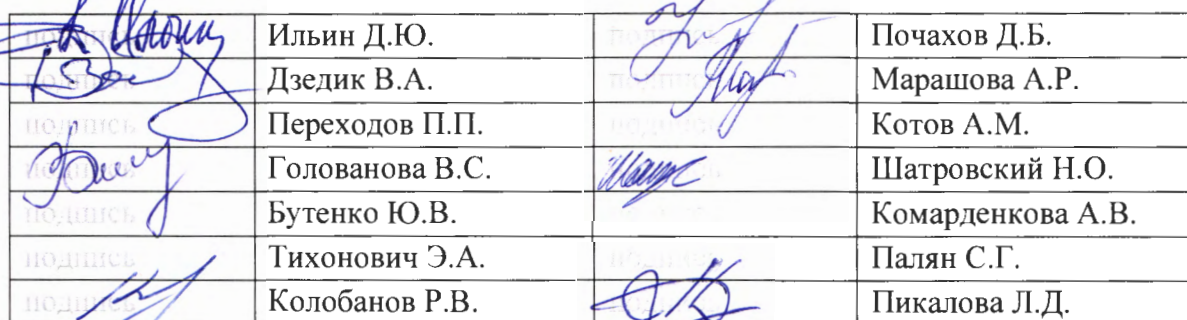 подпись Ильин Д.Ю. подпись Почахов Д.Б.
подпись Дзедик В.А. подпись Марашова А.Р.
подпись Переходов П.П. подпись Котов А.М.
подпись Голованова В.С. Шатровский Н.О.
подпись Бутенко Ю.В. Комарденкова А.В.
подпись Тихонович Э.А. подпись Палян С.Г.
подпись Колобанов Р.В. Пикалова Л.Д.